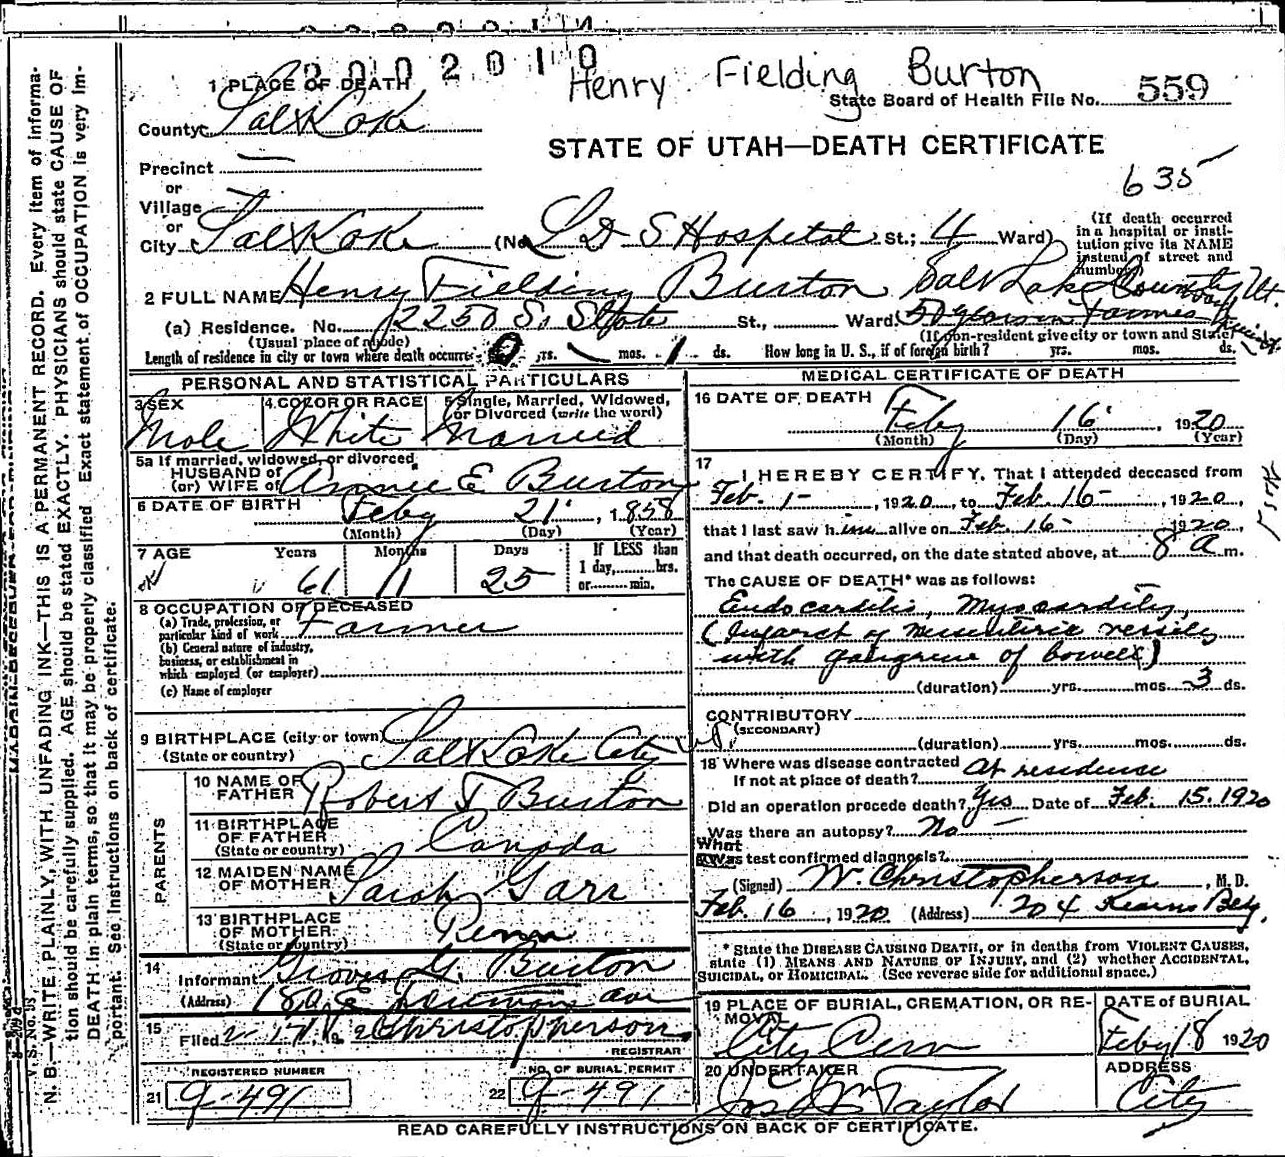 2002010
Henry Fielding Burton
1 PLACE OF DEATH
State Board of Health File No. 559
County Salt Lake
STATE OF UTAH—DEATH CERTIFICATE
Precinct —
635
or
Village
or
City Salt Lake (No. L D S Hospital St.; 4 Ward)
(If death occurred
in a hospital or insti-
tution give its NAME
instead of street and
number)
2 FULL NAME Henry Fielding Burton Salt Lake County Ut.
(a) Residence. No. 2250 So State St., Ward.
(Usual place of abode) (If non-resident give city or town and State)
Length of residence in city or town where death occurred yrs. mos. 1 ds. How long in U. S., if of foreign birth? yrs. mos. ds.
PERSONAL AND STATISTICAL PARTICULARS
3 SEX
Male
4 COLOR OR RACE
White
5 Single, Married, Widowed,
or Divorced (write the word)
Married
5a If married, widowed, or divorced,
HUSBAND of
(or) WIFE of Annie E Burton
6 DATE OF BIRTH Feby 21, 1858
(Month) (Day) (Year)
7 AGE Years Months Days If LESS than
1 day,......hrs.
or......min.
61 11 25
8 OCCUPATION OF DECEASED
(a) Trade, profession, or
particular kind of work Farmer
(b) General nature of industry,
business, or establishment in
which employed (or employer)
(c) Name of employer
9 BIRTHPLACE (city or town) Salt Lake City Ut.
(State or country)
PARENTS
10 NAME OF
FATHER Robert T Burton
11 BIRTHPLACE
OF FATHER Canada
(State or country)
12 MAIDEN NAME
OF MOTHER Sarah Garr
13 BIRTHPLACE
OF MOTHER
(State or country)
14
Informant G. Burton
(Address)
15
Filed Christopherson
REGISTRAR
REGISTERED NUMBER
21 9-491
NO. OF BURIAL PERMIT
22 9-491
MEDICAL CERTIFICATE OF DEATH
16 DATE OF DEATH
Feby 16, 1920
(Month) (Day) (Year)
17
I HEREBY CERTIFY, That I attended deceased from
Feb. 1-, 1920, to Feb. 16-, 1920,
that I last saw him alive on Feb. 16- 1920,
and that death occurred, on the date stated above, at 8 a m.
The CAUSE OF DEATH* was as follows:
Endocarditis, Myocarditis,
(Infarct of mesenteric vessels
with gangrene of bowels)
(duration) yrs. mos. 3 ds.
CONTRIBUTORY
(SECONDARY)
(duration) yrs. mos. ds.
18 Where was disease contracted
If not at place of death? At residence
Did an operation precede death? Yes Date of Feb. 15. 1920
Was there an autopsy? No —
What
test confirmed diagnosis?
(Signed) W. Christopherson, M. D.
Feb. 16, 1920 (Address) 204 Kearns Bldg.
* State the DISEASE CAUSING DEATH, or in deaths from VIOLENT CAUSES,
state (1) MEANS AND NATURE OF INJURY, and (2) whether ACCIDENTAL,
SUICIDAL, or HOMICIDAL. (See reverse side for additional space.)
19 PLACE OF BURIAL, CREMATION, OR RE-
MOVAL
City Cem
DATE of BURIAL
Feby 18 1920
20 UNDERTAKER
Jos Wm Taylor
ADDRESS
City
READ CAREFULLY INSTRUCTIONS ON BACK OF CERTIFICATE.
N. B.—WRITE PLAINLY, WITH UNFADING INK—THIS IS A PERMANENT RECORD. Every item of informa-
tion should be carefully supplied. AGE should be stated EXACTLY. PHYSICIANS should state CAUSE OF
DEATH in plain terms, so that it may be properly classified. Exact statement of OCCUPATION is very im-
portant. See instructions on back of certificate.